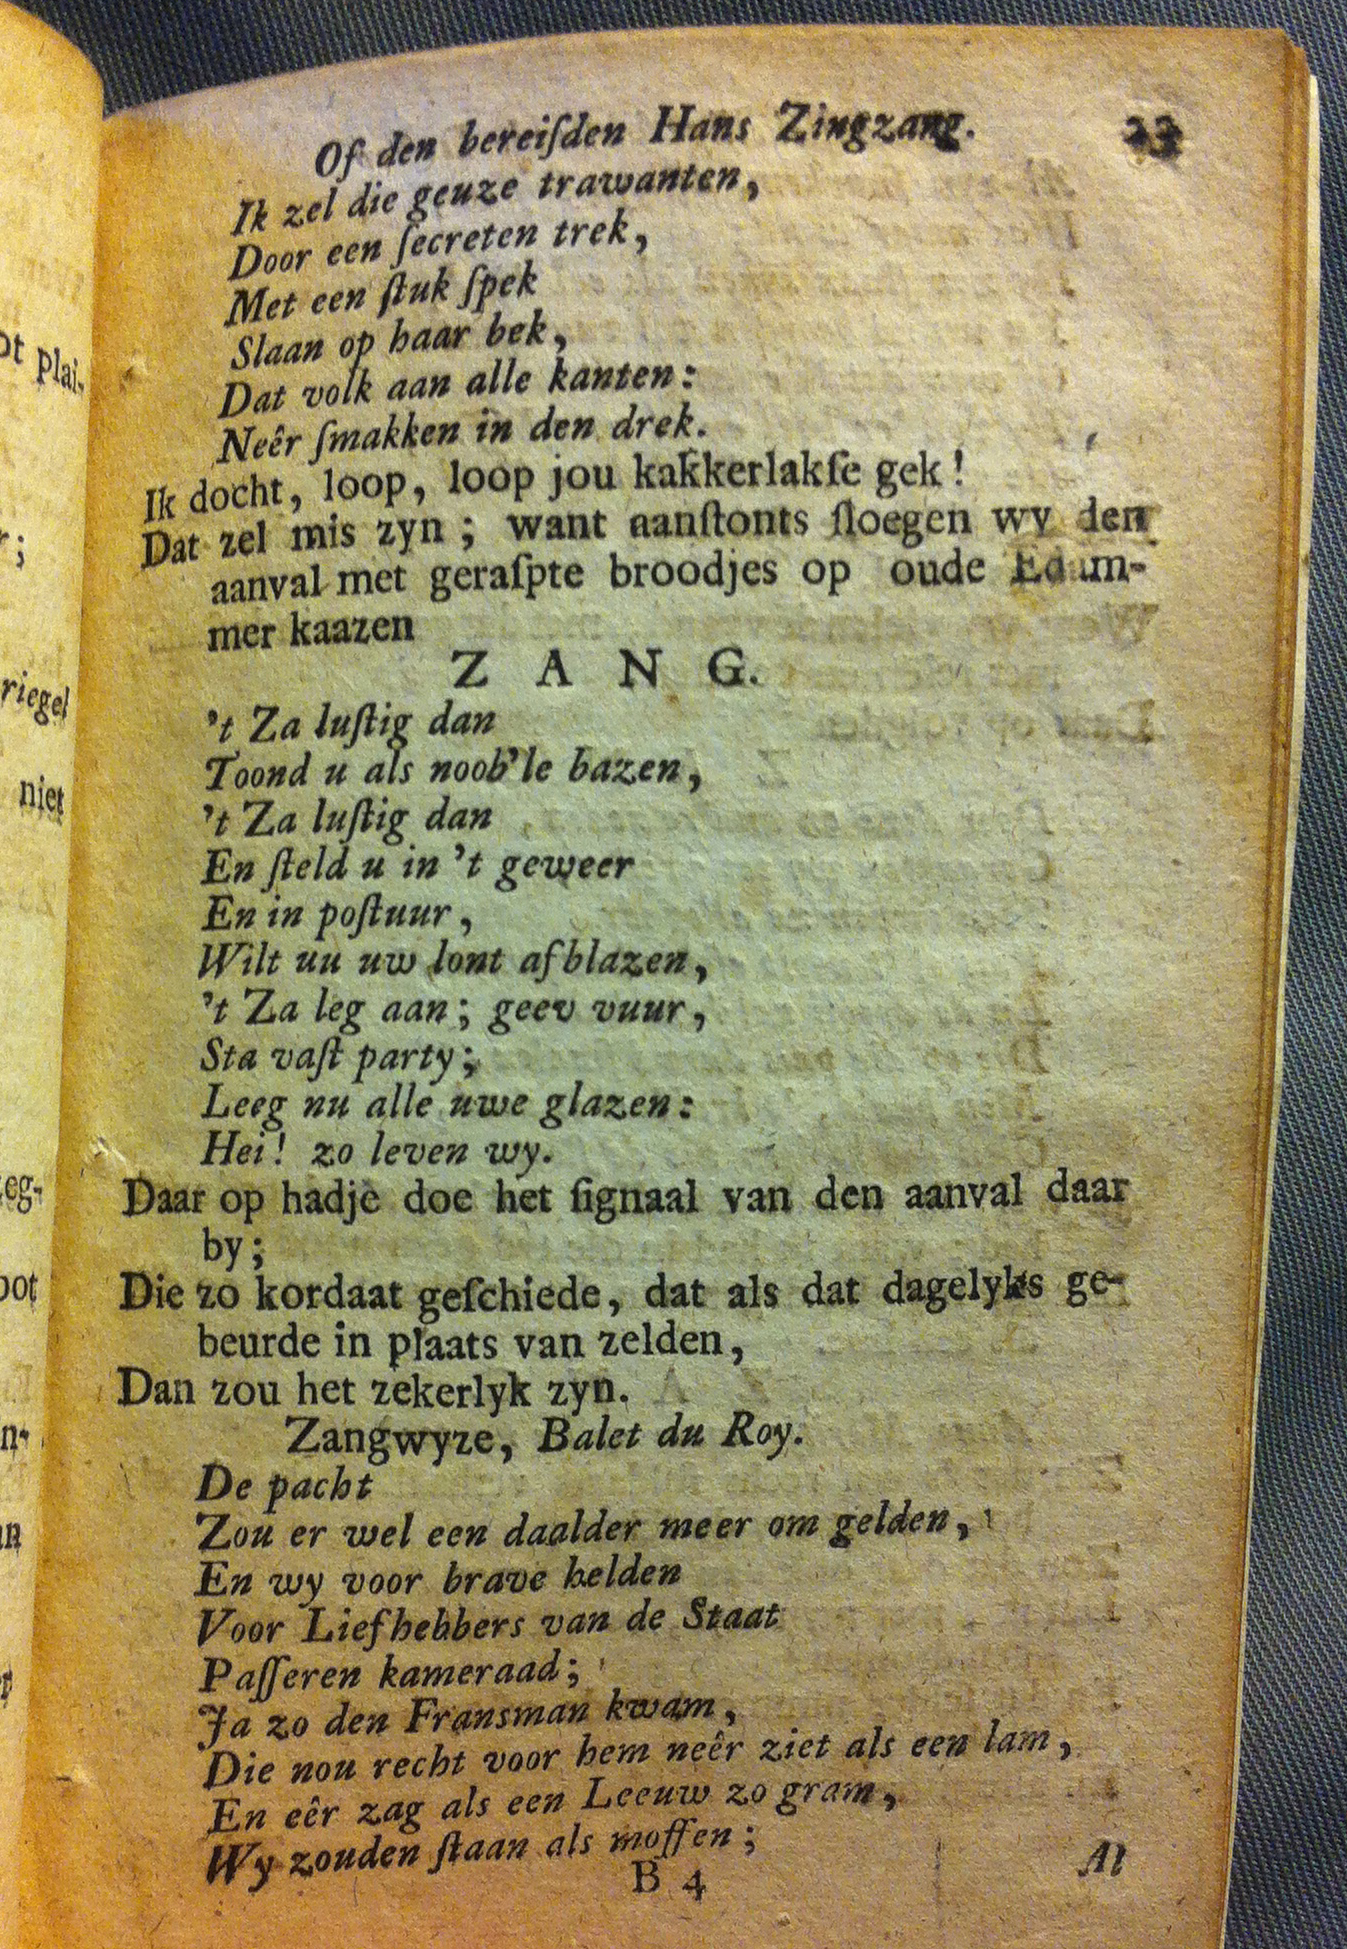 Of den bereiſden Hans Zingzang. 23
Ik zel die geuze trawanten,
Door een ſecreten trek,
Met een ſtuk ſpek
Slaan op haar bek,
Dat volk aan alle kanten:
Neêr ſmakken in den drek.
Ik docht, loop, loop jou kakkerlakſe gek!
Dat zel mis zyn; want aanſtonts ſloegen wy den
aanval met geraſpte broodjes op oude Edam-
mer kaazen
ZANG.
't Za luſtig dan
Toond u als noob'le bazen,
't Za luſtig dan
En ſteld u in 't geweer
En in poſtuur,
Wilt uu uw lont afblazen,
't Za leg aan; geev vuur,
Sta vaſt party;
Leeg nu alle uwe glazen:
Hei! zo leven wy.
Daar op hadje doe het ſignaal van den aanval daar
by;
Die zo kordaat geſchiede, dat als dat dagelyks ge-
beurde in plaats van zelden,
Dan zou het zekerlyk zyn.
Zangwyze, Balet du Roy.
De pacht
Zou er wel een daalder meer om gelden,
En wy voor brave helden
Voor Liefhebbers van de Staat
Paſſeren kameraad;
Ja zo den Fransman kwam,
Die nou recht voor hem neêr ziet als een lam,
En eêr zag als een Leeuw zo gram,
Wy zouden ſtaan als moffen;
B 4 Al